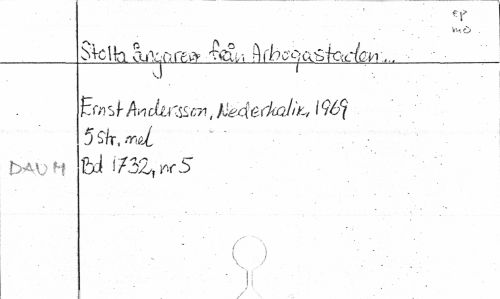 ep
mo
Stolta ångaren från Arbogastaden...
Ernst Andersson, Nederkalix, 1969
5 str. mel
DAUM Bd 1732, nr 5